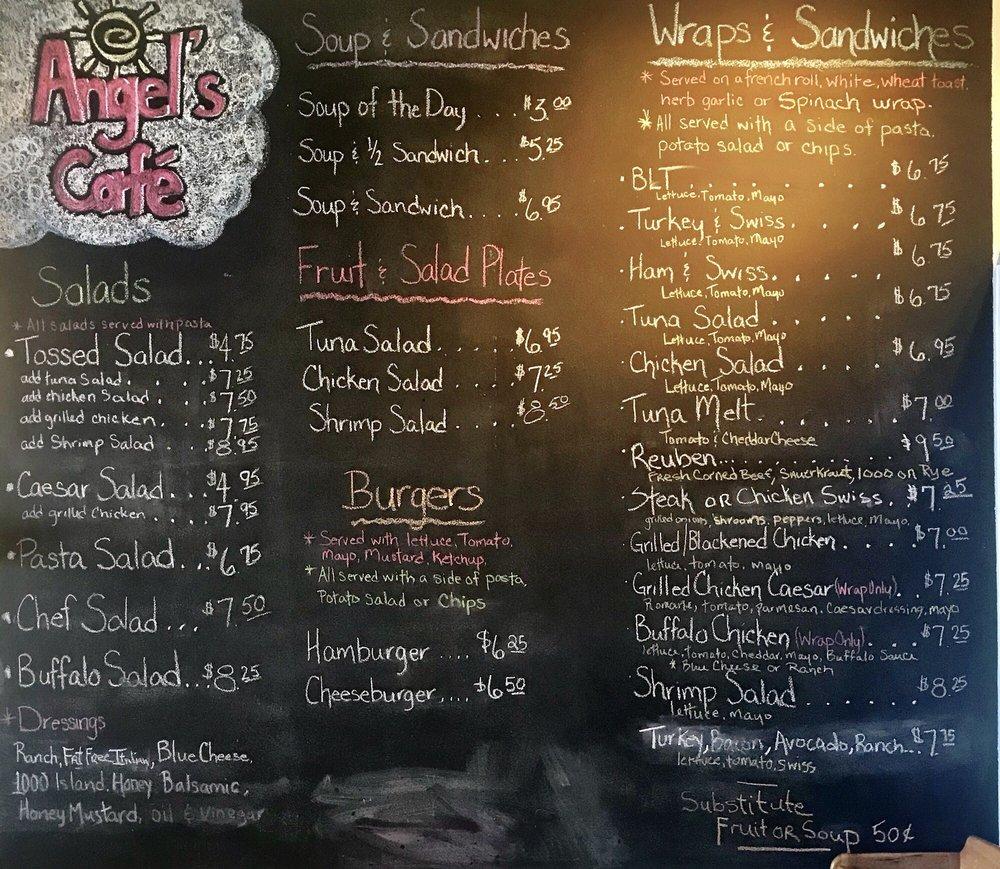 Angel's
Café
Salads
* All salads served with pasta
• Tossed Salad... $4.75
add tuna Salad. . . . $7.25
add chicken Salad. . . . $7.50
add grilled chicken. . . . $7.75
add Shrimp Salad . . . $8.95
• Caesar Salad... $4.95
add grilled chicken. . . . $7.95
• Pasta Salad... $6.75
• Chef Salad ... $7.50
• Buffalo Salad... $8.25
* Dressings
Ranch, Fat Free Italian, Blue Cheese,
1000 Island, Honey Balsamic,
Honey Mustard, oil & Vinegar
Soup & Sandwiches
Soup of the Day . . . $3.00
Soup & 1/2 Sandwich. . . $5.25
Soup & Sandwich . . . . $6.95
Fruit & Salad Plates
Tuna Salad. . . . . $6.95
Chicken Salad . . . . $7.25
Shrimp Salad . . . . $8.50
Burgers
* Served with lettuce, Tomato,
Mayo, Mustard, Ketchup,
* All served with a side of pasta,
Potato Salad or Chips
Hamburger .... $6.25
Cheeseburger.... $6.50
Wraps & Sandwiches
* Served on a french roll, white, wheat toast,
herb garlic or Spinach wrap.
* All served with a side of pasta,
potato salad or chips.
• BLT . . . . . . . . $6.75
Lettuce, Tomato, Mayo
• Turkey & Swiss . . . . . $6.75
Lettuce, Tomato, Mayo
• Ham & Swiss. . . . . . $6.75
Lettuce, Tomato, Mayo
• Tuna Salad . . . . . $6.75
Lettuce, Tomato, Mayo
• Chicken Salad . . . . . $6.95
Lettuce, Tomato, Mayo
• Tuna Melt. . . . . . . $7.00
Tomato & Cheddar Cheese
• Reuben............ $9.50
Fresh Corned Beef, Sauerkraut, 1000 on Rye
• Steak or Chicken Swiss. . $7.25
grilled onions, shrooms, peppers, lettuce, Mayo,
• Grilled/Blackened Chicken . . . . $7.00
lettuce, tomato, mayo
• Grilled Chicken Caesar (Wrap Only) . $7.25
Romaine, tomato, parmesan, Caesar dressing, mayo
• Buffalo Chicken (Wrap Only). . . . $7.25
lettuce, Tomato, Cheddar, Mayo, Buffalo Sauce
* Blue Cheese or Ranch
• Shrimp Salad . . . . . . . $8.25
lettuce, mayo
Turkey, Bacon, Avocado, Ranch... $7.75
lettuce, tomato, swiss
Substitute
Fruit or Soup 50¢